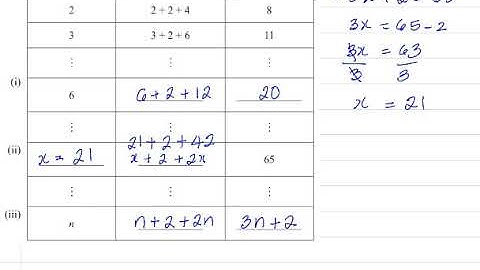 2 2 + 2 + 4 8
3 3 + 2 + 6 11
⋮ ⋮ ⋮
(i) 6 6 + 2 + 12 20
⋮ ⋮ ⋮
21 + 2 + 42
(ii) x = 21 x + 2 + 2x 65
⋮ ⋮ ⋮
(iii) n n + 2 + 2n 3n + 2
3x = 65 - 2
3x = 63
3 3
x = 21